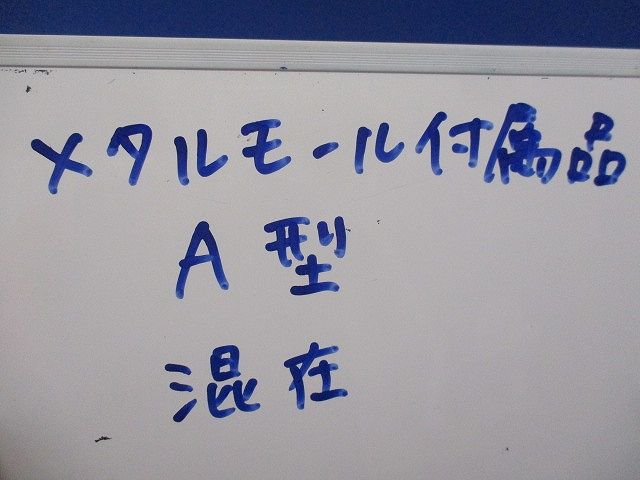 メタルモール付属品
A型
混在